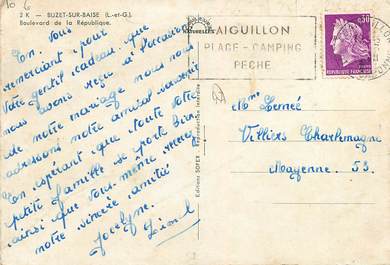 10 6
2 K - BUZET-SUR-BAISE (L.-et-G.)
Boulevard de la République.
Ton, Vous
remerciant pour
Votre gentil cadeau, que
nous avons reçu à l'occasion
de notre mariage nous nous
adressons notre amical souvenir
Ton, espérant, que toute votre
petite famille se porte bien
ainsi que vous-même recevez
notre sincère amitié
Jocelyne
NATURELLES
AIGUILLON
PLAGE - CAMPING
PÊCHE
0,30
REPUBLIQUE FRANÇAISE
Editions SOFER
Reproduction Interdite
Mme
Villiers Charlemagne
Mayenne 53.